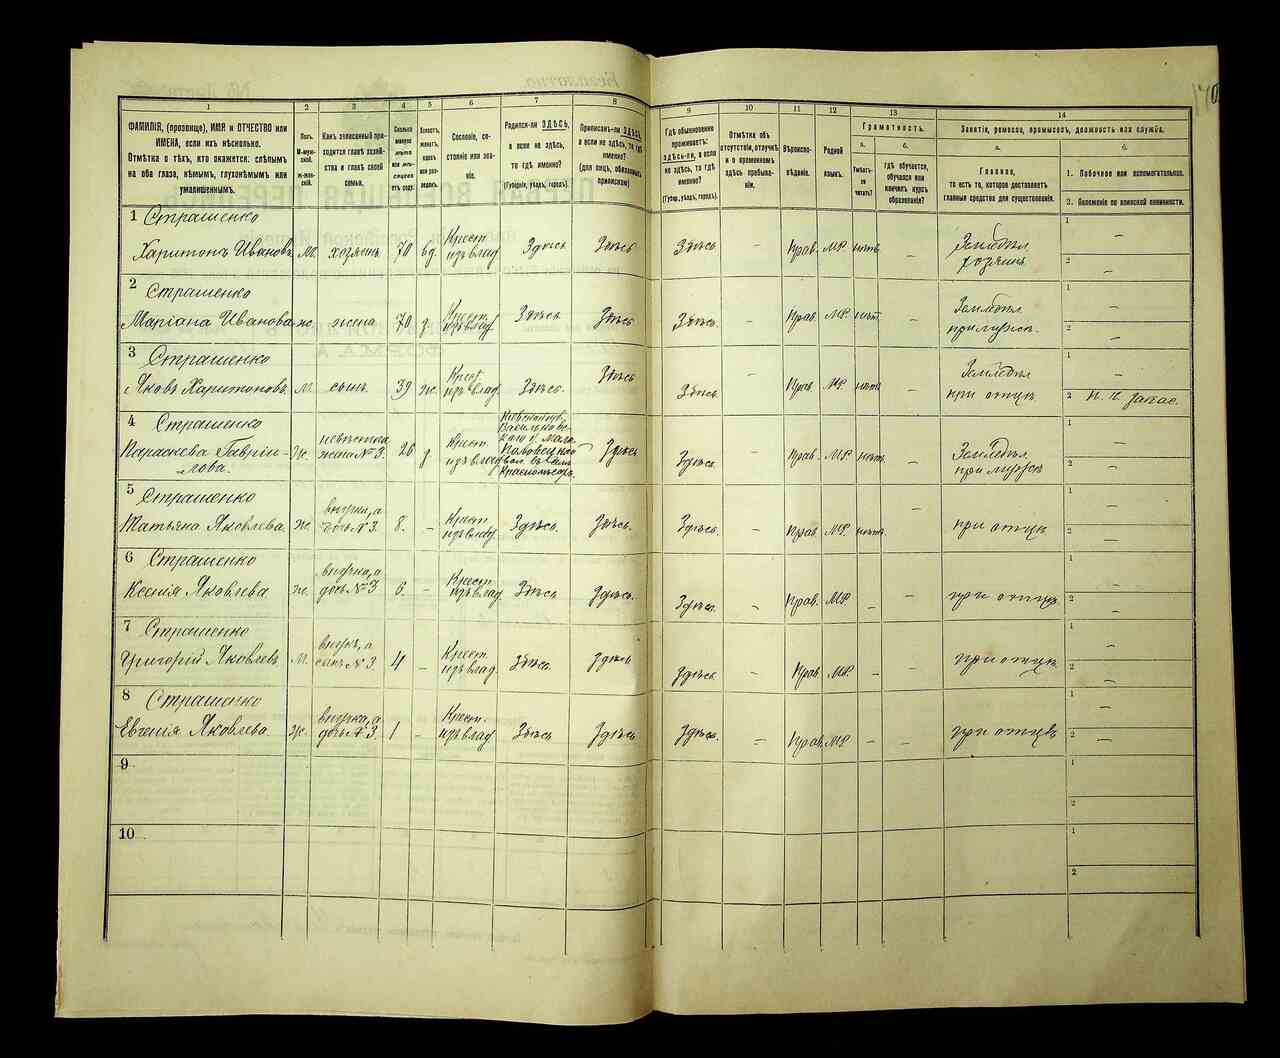 170
1
2
3
4
5
6
7
8
9
10
11
12
13
14
ФАМИЛІЯ, (прозвище), ИМЯ и ОТЧЕСТВО или
ИМЕНА, если ихъ нѣсколько.
Отмѣтка о тѣхъ, кто окажется: слѣпымъ
на оба глаза, нѣмымъ, глухонѣмымъ или
умалишеннымъ.
Полъ.
М-муж-
ской.
ж-жен-
скій.
Какъ записанный при-
ходится главѣ хозяй-
ства и главѣ своей
семьи.
Сколько
минуло
лѣтъ
или мѣ-
сяцевъ
отъ роду.
Холостъ,
женатъ,
вдовъ
или раз-
веденъ.
Сословіе, со-
стояніе или зва-
ніе.
Родился-ли ЗДѢСЬ,
а если не здѣсь,
то гдѣ именно?
(Губернія, уѣздъ, городъ).
Приписанъ-ли ЗДѢСЬ,
а если не здѣсь, то гдѣ
именно?
(для лицъ, обязанныхъ
припискою)
Гдѣ обыкновенно
проживаетъ:
ЗДѢСЬ-ли, а если
не здѣсь, то гдѣ
именно?
(Губер., уѣздъ, городъ).
Отмѣтка объ
отсутствіи, отлучкѣ
и о временномъ
здѣсь пребыва-
ніи.
Вѣроиспо-
вѣданіе.
Родной
языкъ.
Грамотность.
а.
б.
Умѣетъ-ли
читать?
гдѣ обучается,
обучался или
кончилъ курсъ
образованія?
Занятіе, ремесло, промыселъ, должность или служба.
а.
б.
Главное,
то есть то, которое доставляетъ
главныя средства для существованія.
1. Побочное или вспомогательное.
2. Положеніе по воинской повинности.
1 Страшенко
Харитонъ Ивановъ м. хозяинъ 70 вд. Крест. изъ влад. Здѣсь Здѣсь Здѣсь – Прав. МР. нѣтъ – Земледѣл. хозяинъ 1 – 2 –
2 Страшенко
Маріана Иванова ж. жена 70 з. Крест. изъ влад. Здѣсь Здѣсь Здѣсь. – Прав. МР. нѣтъ – Земледѣл. при мужѣ. 1 – 2 –
3 Страшенко
Яковъ Харитоновъ м. сынъ 39 ж. Крест. изъ влад. Здѣсь. Здѣсь Здѣсь. – Прав. МР. нѣтъ – Земледѣл. при отцѣ 1 – 2
4 Страшенко
Параскева Гаврии-
лова. ж. невѣстка жена №3. 26 з. Крест. изъ влад. Здѣсь Здѣсь. – Прав. МР. нѣтъ – Земледѣл. при мужѣ 1 – 2 –
5 Страшенко
Татьяна Яковлева ж. внучка, а дочь №3. 8. – Крест. изъ влад. Здѣсь. Здѣсь. Здѣсь. – Прав. МР. нѣтъ – при отцѣ 1 – 2 –
6 Страшенко
Ксенія Яковлева ж. внучка, а дочь №3 6. – Крест. изъ влад. Здѣсь Здѣсь. Здѣсь. – Прав. МР. – – при отцѣ 1 – 2 –
7 Страшенко
Григорій Яковлевъ м. внукъ, а сынъ №3. 4 – Крест. изъ влад. Здѣсь. Здѣсь Здѣсь. – Прав. МР. – – при отцѣ 1 – 2 –
8 Страшенко
Евгенія Яковлева. ж. внучка, а дочь №3. 1 – Крест. изъ влад. Здѣсь Здѣсь Здѣсь. – Прав. МР. – – при отцѣ 1 – 2 –
9 1 2
10 1 2